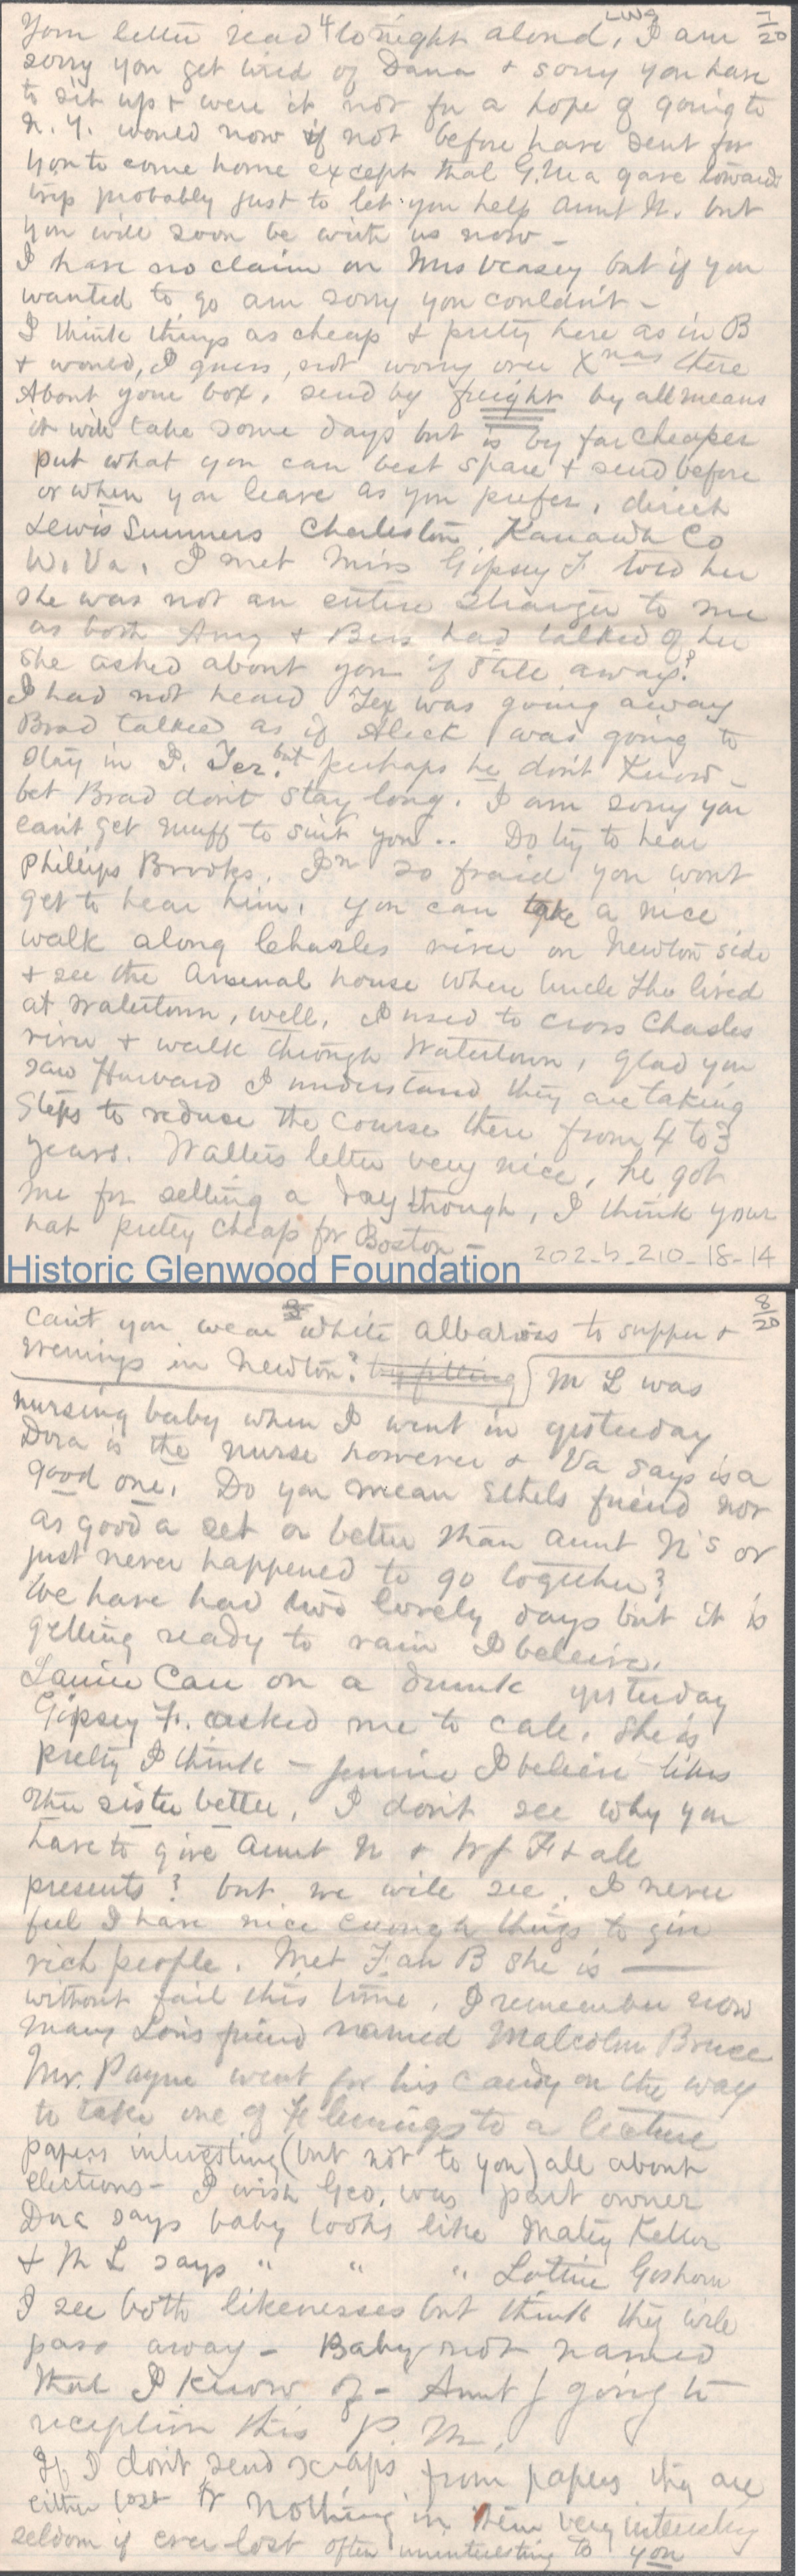 Your letter read to night aloud, I am 7/20
sorry you get tired of Dana + sorry you have
to sit up + were it not for a hope of going to
N. Y. would now if not before have sent for
you to come home except that G. Ma gave towards
trip probably just to let you help Aunt N. but
you will soon be with us now -
I have no claim on Mrs Veasey but if you
wanted to go am sorry you couldn't -
I think things as cheap + pretty here as in B
+ would, I guess, not worry over Xmas there
About your box, send by freight by all means
it will take some days but is by far cheaper
put what you can best spare + send before
or when you leave as you prefer, direct
Lewis Summers Charleston Kanawha Co
W. Va. I met Miss Gipsey F told her
she was not an entire stranger to me
as both Amy + Bess had talked of her
she asked about you if still away?
I had not heard Tex was going away
Brad talked as if Aleck was going to
stay in I. Ter. but perhaps he don't know -
bet Brad don't stay long. I am sorry you
can't get muff to suit you .. Do try to hear
Phillips Brooks, I'm so fraid you wont
get to hear him, you can take a nice
walk along Charles river on Newton side
+ see the Arsenal house where Uncle Tho lived
at Watertown, well, I used to cross Charles
river + walk through Watertown, glad you
saw Harvard I understand they are taking
steps to reduce the course there from 4 to 3
years. Walters letter very nice, he got
me for selling a day though, I think your
hat pretty cheap for Boston -
202-b-210-18-14
Historic Glenwood Foundation
can't you wear white albatross to supper + 8/20
evenings in Newton? M L was
nursing baby when I went in yesterday
Dora is the nurse however + Va says is a
good one. Do you mean Ethels friend not
as good a set or better than Aunt N's or
just never happened to go together?
We have had two lovely days but it is
getting ready to rain I beleive.
Carr on a drunk yesterday
Gipsey F. asked me to call, she is
pretty I think - Jennie I beleive likes
other sister better, I don't see why you
have to give Aunt N + F + all
presents? but we will see. I never
feel I have nice enough things to give
rich people. Met B she is ——
without fail this time, I remember now
Mary Lou's friend named Malcolm Bruce
Mr. Payne went for his candy on the way
to take one of to a lecture
papers interesting (but not to you) all about
elections - I wish Geo. was part owner
Dora says baby looks like Maty Keller
+ M L says " " " Lottie Goshorn
I see both likenesses but think they will
pass away - Baby not named
that I know of - Aunt J going to
reception this P. M.
If I don't send scraps from papers they are
either lost or nothing in them very interesting
seldom if ever lost often uninteresting to you